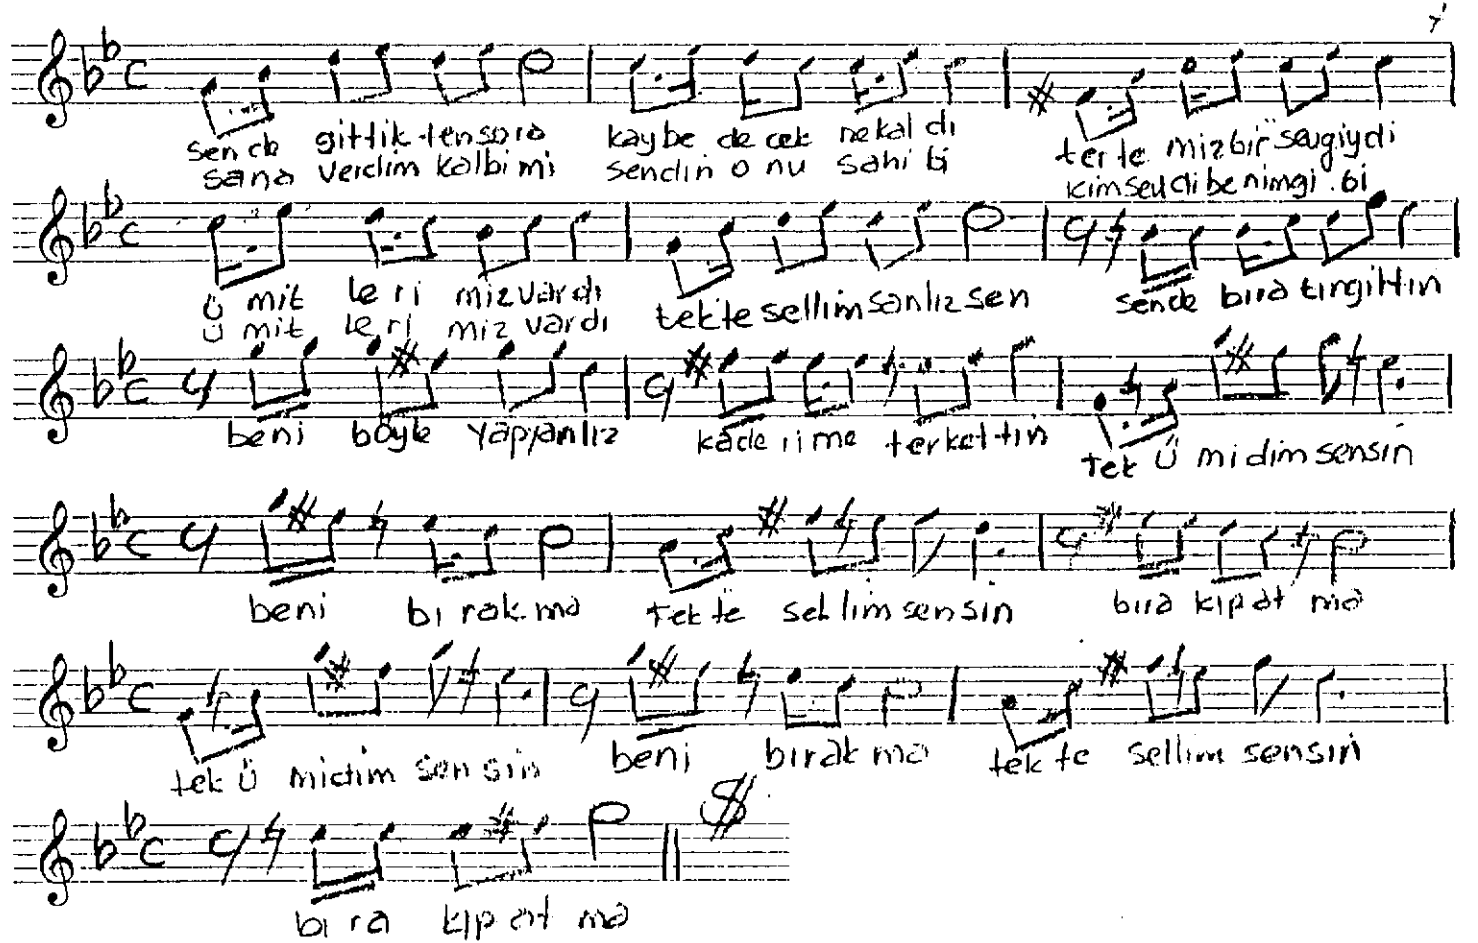 sende gittik ten sora kaybe de cek nekal dı terte miz bir sevgiydi
sana verdim kalbi mi sendin o nu sahi bi kimsevdi be nimgi .bi
ü mit le ri miz vardı tekte sellim sanlız sen sende bıra tın gittin
ü mit le ri miz vardı
beni böyle yapyanlız kade rime terket tin tek ü midim sensin
beni bı rak ma tek te sel lim sensin bıra kıp at ma
tek ü midim sen sin beni bırak ma tek te sellim sensin
bı ra kıp at ma